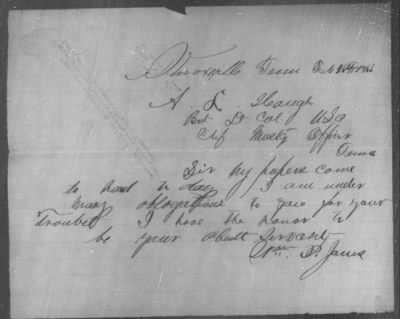 Knoxville Tenn Feb 26th 1866
A. L. Hough
Bvt Lt Col USA
Chf Mustg Officer
Tenn
Sir My papers come
to hand to day I am under
Many obligations to you for your
Trouble I have the honor to
be your obedt Servant
Wm P. Jones